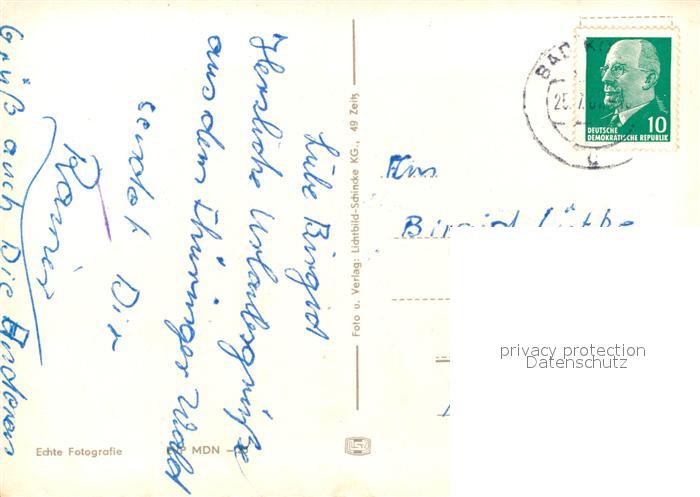 Liebe Birgid
Herzliche Urlaubsgrüße
aus dem Thüringer Wald
sendet Dir
Rainer
Grüß auch Die Anderen
Echte Fotografie
MDN
Foto u. Verlag: Lichtbild-Schincke KG., 49 Zeitz
BAD
25.7.
10
DEUTSCHE
DEMOKRATISCHE REPUBLIK
Birgid
privacy protection
Datenschutz